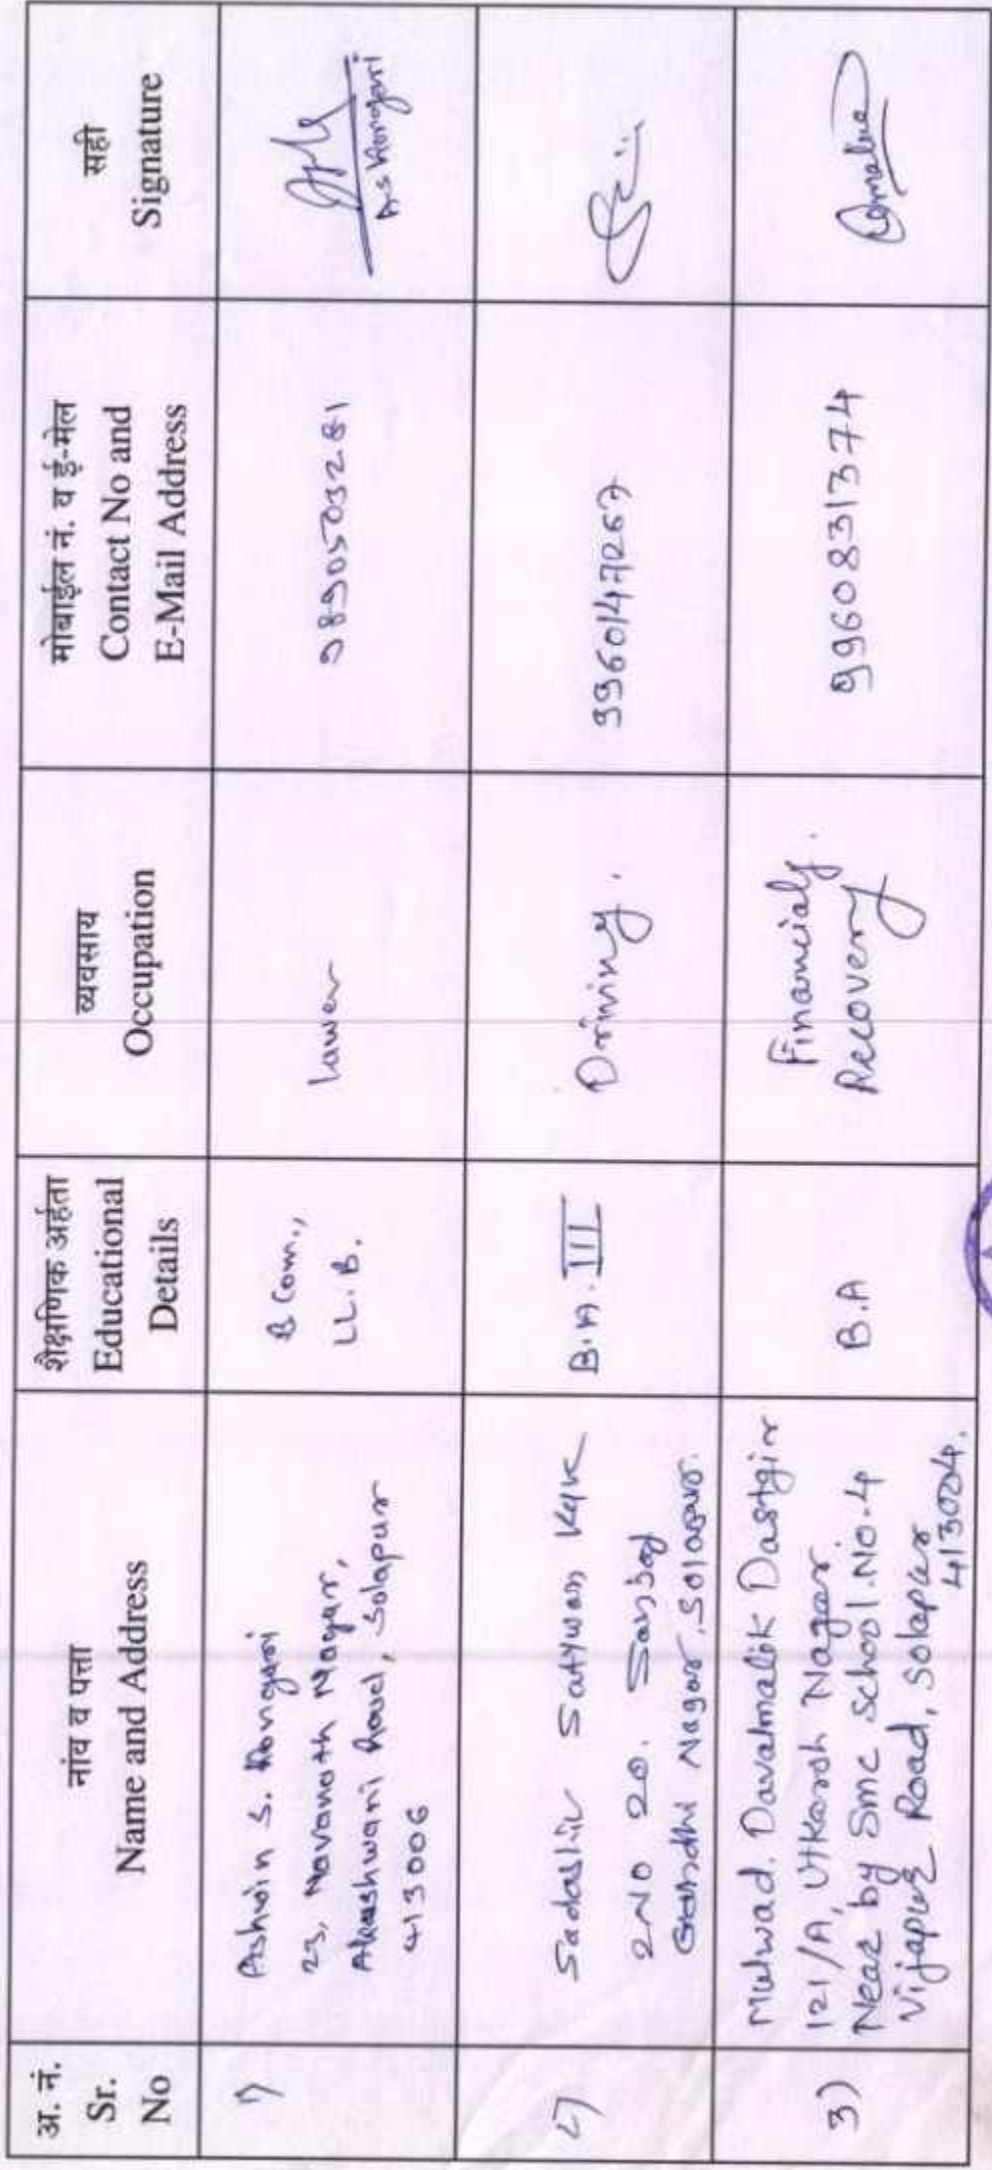 अ. नं.
Sr.
No
नांव व पत्ता
Name and Address
शैक्षणिक अर्हता
Educational
Details
व्यवसाय
Occupation
मोबाईल नं. व ई-मेल
Contact No and
E-Mail Address
सही
Signature
1)
Ashwin S.
23, Navanath Nagar,
Akashwani Road, Solapur
413006
B Com.,
LL.B.
lawer
9890503281
2)
Sadashiv Satywan
2NO 20.
Gandhi Nagar, Solapur.
B.A. III
Driving.
9960147267
3)
Mulwad. Davalmalik Dastgir
121/A, Utkarsh Nagar
Near by Smc School.No.4
Vijapur Road, Solapur
413004.
B.A
Financialy.
Recovery
9960831374